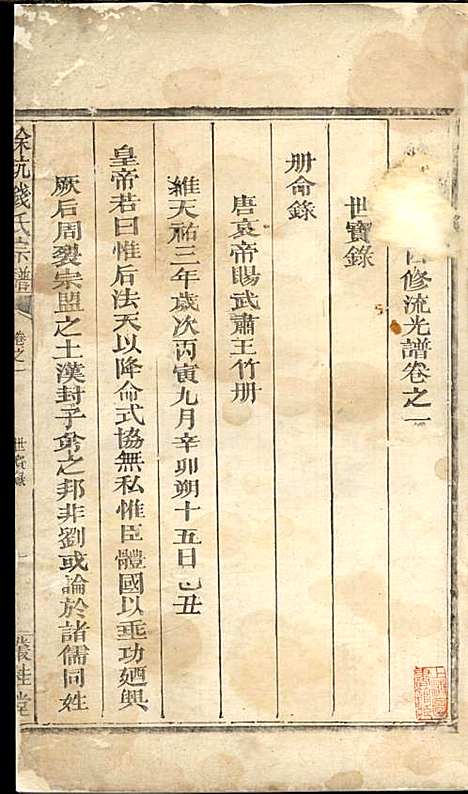 修流光譜卷之一
世寶錄
册命錄
唐哀帝賜武肅王竹册
維天祐三年歲次丙寅九月辛卯朔十五日己丑
皇帝若曰惟后法天以降命式協無私惟臣體國以垂功廼興
厥后周裂宗盟之土漢封子弟之邦非劉或論於諸儒同姓
餘杭錢氏宗譜
卷之一
世寶錄
叢桂堂